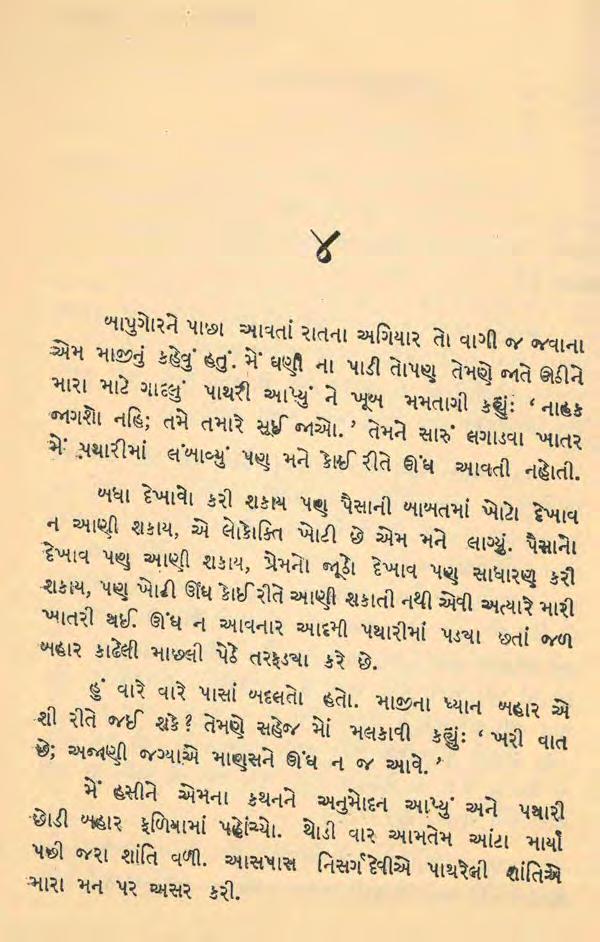 ૪
બાપુગોરને પાછા આવતાં રાતના અગિયાર તો વાગી જ જવાના
એમ માજીનું કહેવું હતું. મેં ઘણી ના પાડી તોપણ તેમણે જાતે ઊઠીને
મારા માટે ગાદલું પાથરી આપ્યું ને ખૂબ મમતાથી કહ્યું: ‘ નાહક
જાગશો નહિ; તમે તમારે સૂઈ જાઓ. ’ તેમને સારું લગાડવા ખાતર
મેં પથારીમાં લંબાવ્યું પણ મને કોઈ રીતે ઊંઘ આવતી નહોતી.
બધા દેખાવો કરી શકાય પણ પૈસાની બાબતમાં ખોટો દેખાવ
ન આણી શકાય, એ લોકોક્તિ ખોટી છે એમ મને લાગ્યું. પૈસાનો
દેખાવ પણ આણી શકાય, પ્રેમનો જૂઠો દેખાવ પણ સાધારણ કરી
શકાય, પણ ખોટી ઊંઘ કોઈ રીતે આણી શકાતી નથી એવી અત્યારે મારી
ખાતરી થઈ. ઊંઘ ન આવનાર આદમી પથારીમાં પડ્યા છતાં જળ
બહાર કાઢેલી માછલી પેઠે તરફડ્યા કરે છે.
હું વારે વારે પાસાં બદલતો હતો. માજીના ધ્યાન બહાર એ
શી રીતે જઈ શકે? તેમણે સહેજ મોં મલકાવી કહ્યું: ‘ ખરી વાત
છે; અજાણી જગ્યાએ માણસને ઊંઘ ન જ આવે. ’
મેં હસીને એમના કથનને અનુમોદન આપ્યું અને પથારી
છોડી બહાર ફળિયામાં પહોંચ્યો. થોડી વાર આમતેમ આંટા માર્યા
પછી જરા શાંતિ વળી. આસપાસ નિસર્ગદેવીએ પાથરેલી શાંતિએ
મારા મન પર અસર કરી.